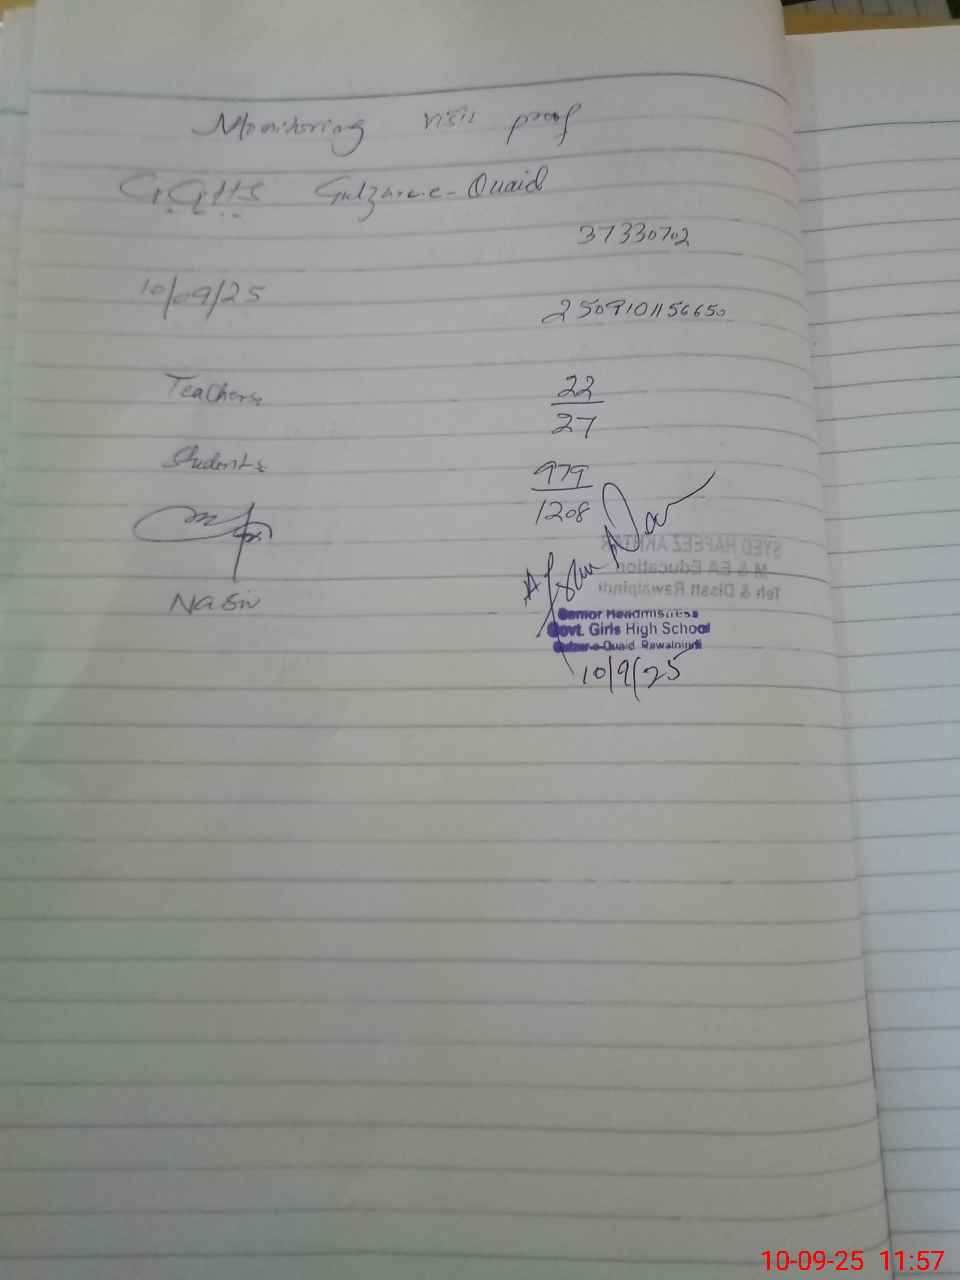 Monitoring visit proof
G.G.H.S Gulzar-e-Quaid
37330702
10/09/25
2509101156650
Teachers 22/27
Students 979/1208
Nasir
SYED HAFEEZ AKHTAR
M & EA Education
Teh & Disst Rawalpindi
Senior Headmistress
Govt. Girls High School
Gulzar-e-Quaid Rawalpindi
10/9/25
10-09-25 11:57